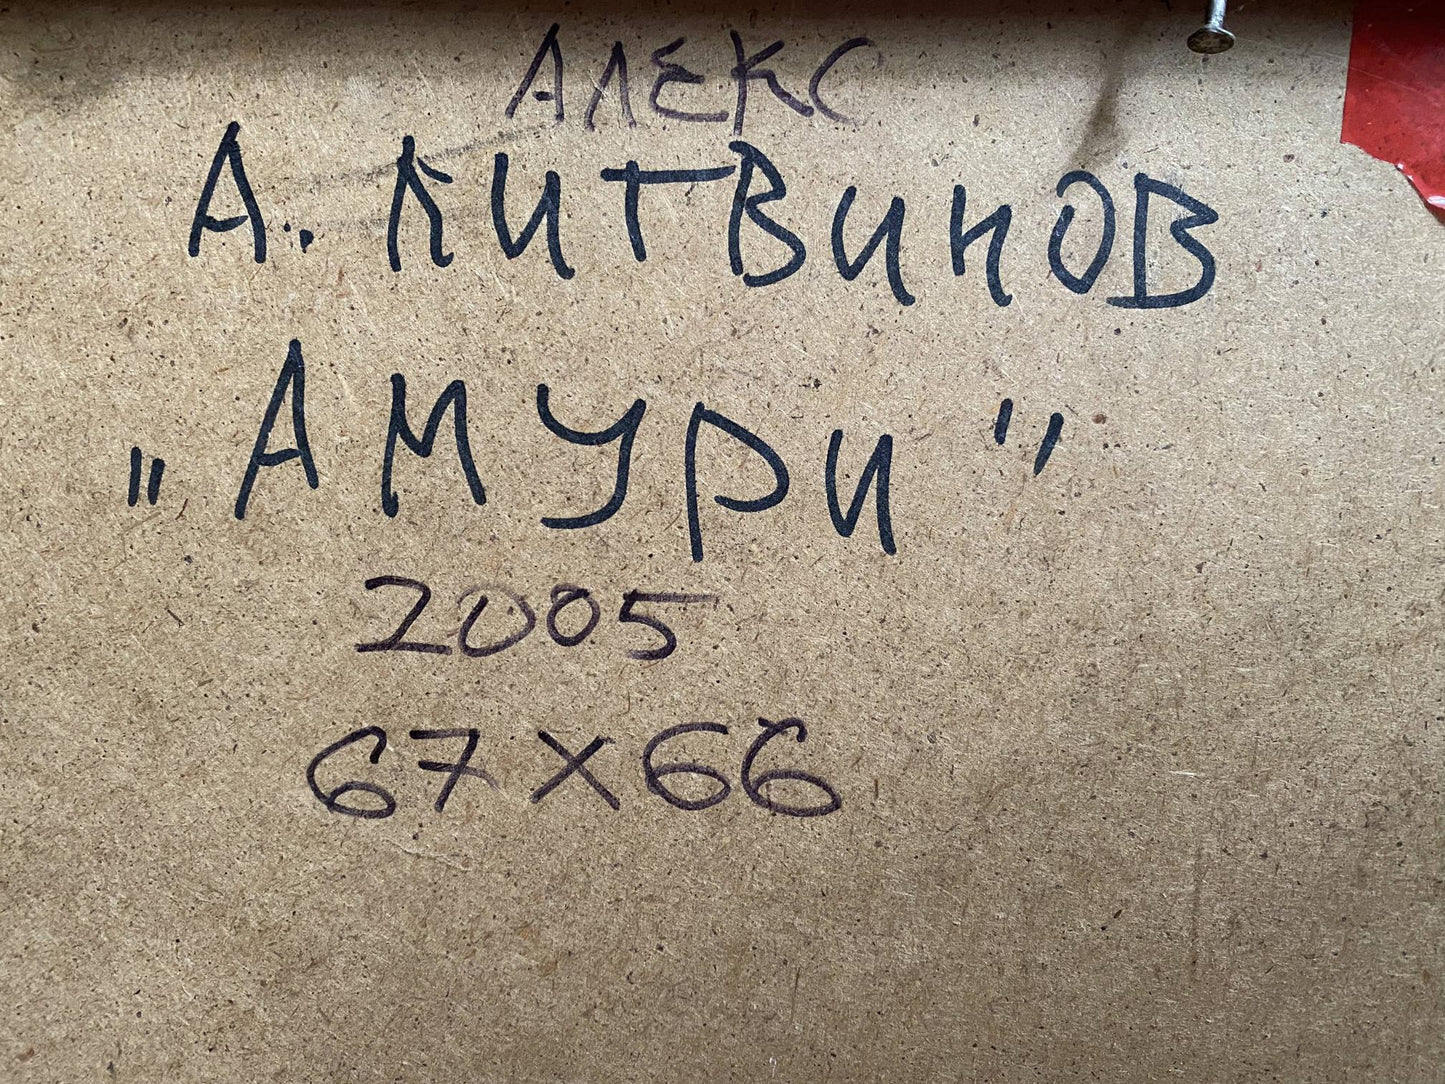 АЛЕКС
А. ЛИТВИНОВ
„АМУРИ"
2005
67X66